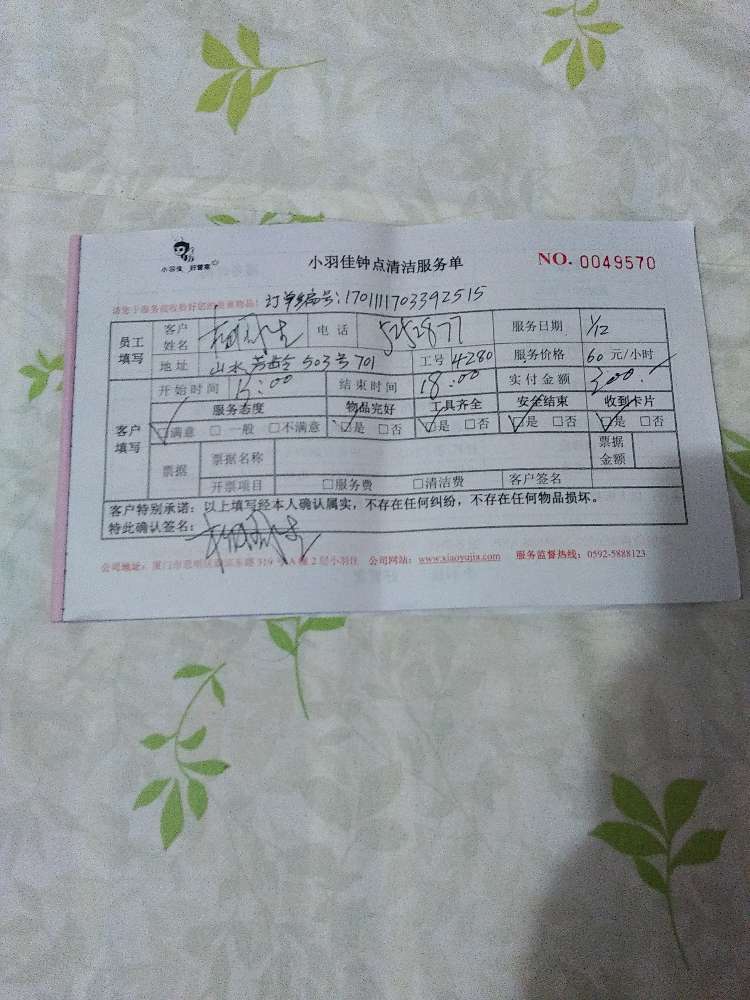 小羽佳 好管家
小羽佳钟点清洁服务单 NO. 0049570
请您于服务前收拾好您的贵重物品! 订单编号:1701111703392515
员工填写 客户姓名 电话 5252877 服务日期 1/12
地址 山水芳 503号701 工号 4280 服务价格 60 元/小时
开始时间 :00 结束时间 18:00 实付金额 300.
客户填写 服务态度 物品完好 工具齐全 安全结束 收到卡片
☑满意 □一般 □不满意 ☑是 □否 ☑是 □否 ☑是 □否 ☑是 □否
票据 票据名称 票据金额
开票项目 □服务费 □清洁费 客户签名
客户特别承诺:以上填写经本人确认属实,不存在任何纠纷,不存在任何物品损坏。
特此确认签名:
公司地址:厦门市思明区 东路 319 号 A 幢 2 层小羽佳 公司网站:www.xiaoyujia.com 服务监督热线:0592-5888123